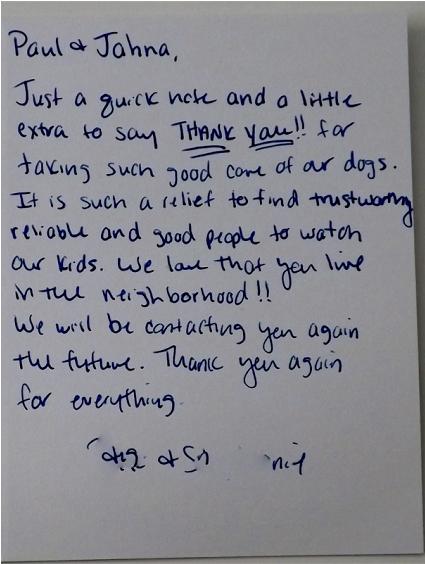 Paul & Jahna,
Just a quick note and a little
extra to say THANK YOU!! for
taking such good care of our dogs.
It is such a relief to find trustworthy
reliable and good people to watch
our kids. We love that you live
in the neighborhood!!
We will be contacting you again
the future. Thank you again
for everything.